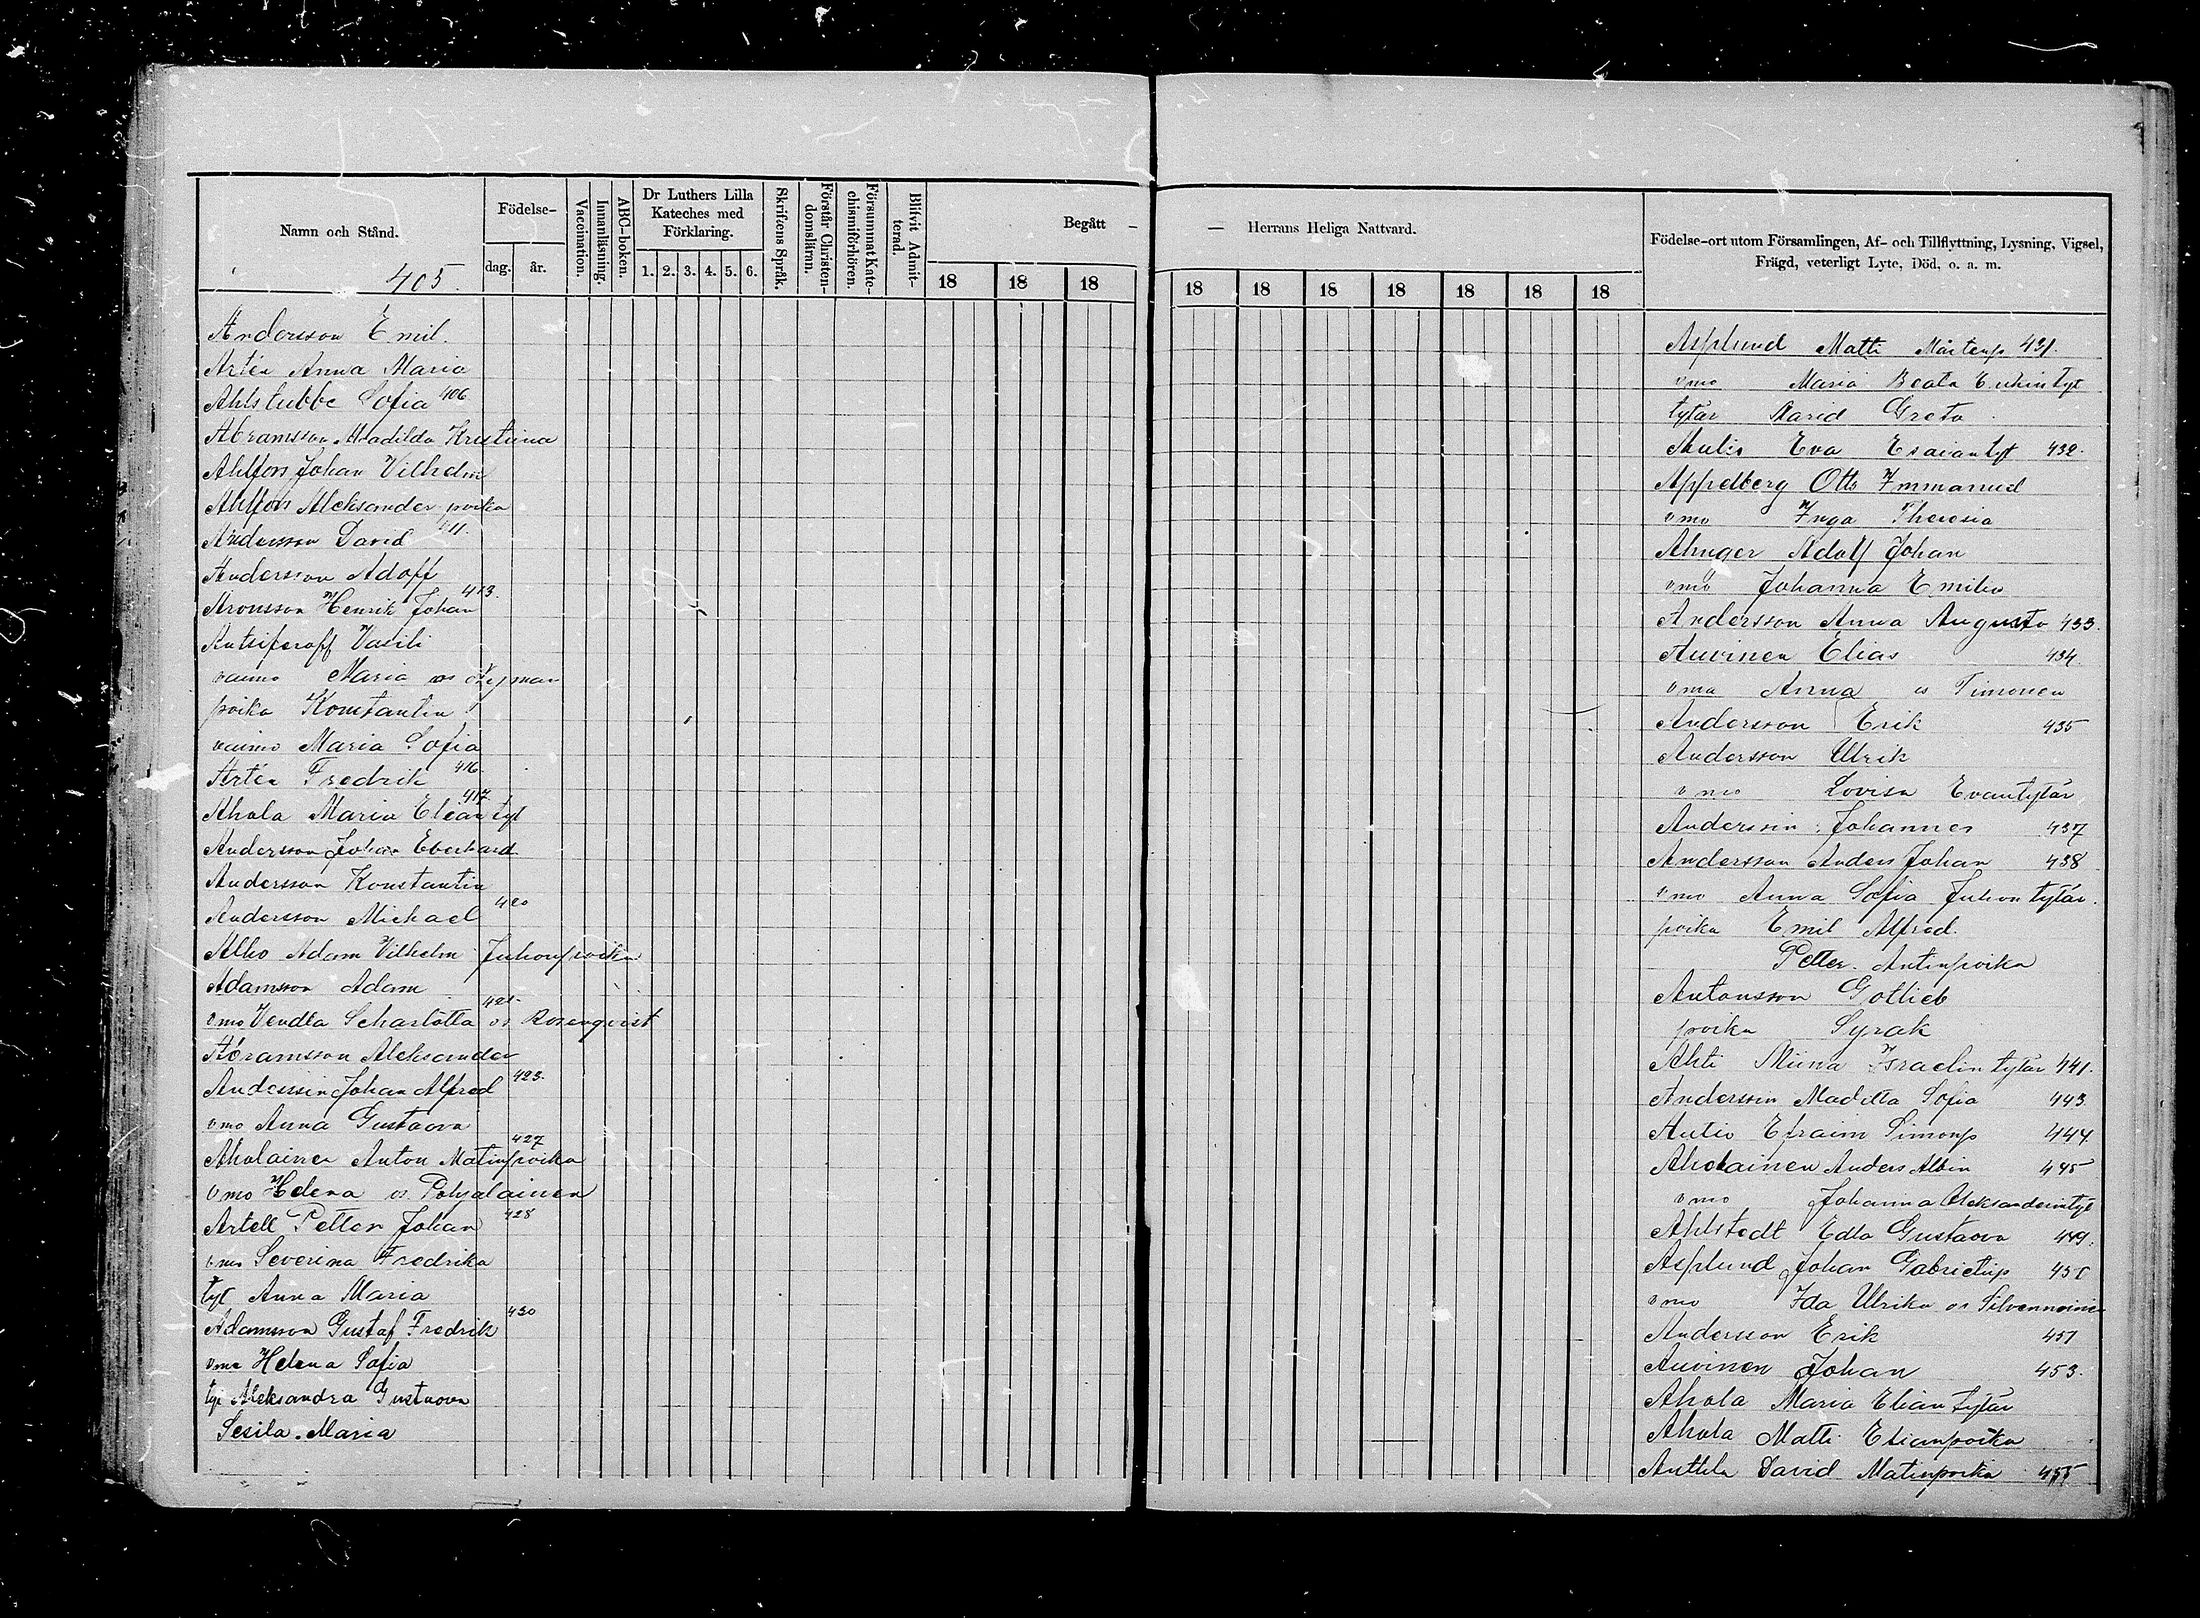 Namn och Stånd.
405.
Födelse-
dag.
år.
Vaccination.
Innanläsning.
ABC-boken.
Dr Luthers Lilla
Kateches med
Förklaring.
1. 2. 3. 4. 5. 6.
Skriftens Språk.
Förstår Christen-
domsläran.
Försummat Kate-
chismiförhören.
Blifvit Admit-
terad.
Begått –
18 18 18
– Herrans Heliga Nattvard.
18 18 18 18 18 18 18
Födelse-ort utom Församlingen, Af- och Tillflyttning, Lysning, Vigsel,
Frägd, veterligt Lyte, Död, o. a. m.
Andersson Emil.
Artén Anna Maria
Ahlstubbe Sofia 406
Abramsson Madilda Kristiina
Ahlfors Johan Vilhelm
Ahlfors Aleksander poika
Andersson David 411.
Andersson Adolf
Aronsson Henrik Johan 413.
Antsiferoff Vasili
vaimo Maria os
poika Konstantin
vaimo Maria Sofia
Artén Fredrik 416.
Ahola Maria Eliantyt 417.
Andersson Johan Eberhard
Andersson Konstantin
Andersson Michael 420
Alho Adam Vilhelm Juhonpoika
Adamsson Adam
vmo Vendla Scharlotta os Rosenqvist 421.
Abramsson Aleksander
Anderssin Johan Alfred 423.
vmo Anna Gustaova
Aholainen Anton Matinpoika 427
vmo Helena os Pohjalainen
Artell Petter Johan 428
vmo Severina Fredrika
tyt Anna Maria
Adamsson Gustaf Fredrik 430
vmo Helena Sofia
tyt Aleksandra Gustaova
Sesila Maria
Asplund Matti Mårtensp 431.
vmo Maria Beata Erkintyt
tytär Karid Greta
Aulis Eva Esaiantyt 432.
Appelberg Otto Immanuel
vmo Inga Theresia
Ahnger Adolf Johan
vmo Johanna Emilia
Andersson Anna Augusta 433.
Auvinen Elias 434.
vmo Anna os Timonen
Andersson Erik 435
Andersson Ulrik
vmo Lovisa Evantytär
Anderssin Johannes 437
Andersson Anders Johan 438
vmo Anna Sofia Juhontytär.
poika Emil Alfred.
Petter Antinpoika
Antonsson Gotlieb
poika Syrak
Ahti Miina Israelintytär 441.
Anderssin Maditta Sofia 443
Autio Efraim Simonp 444
Aholainen Anders Albin 445
vmo Johanna Aleksanderintyt
Ahlstedt Edla Gustaova 449.
Asplund Johan Gabrielsp 450
vmo Ida Ulrika os Silvennoine
Andersson Erik 451
Auvinen Johan 453.
Ahola Maria Eliantytär
Ahola Matti Elianpoika
Anttila David Matinpoika 455